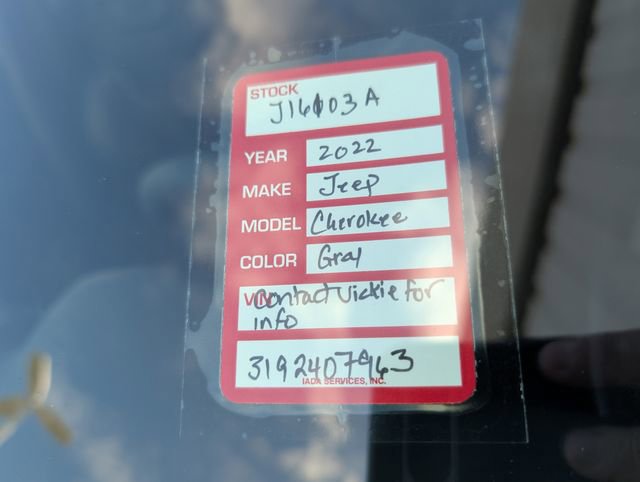 STOCK
J16103A
YEAR 2022
MAKE Jeep
MODEL Cherokee
COLOR Gray
VIN Contact Vickie for
info
3192407963
IADA SERVICES, INC.